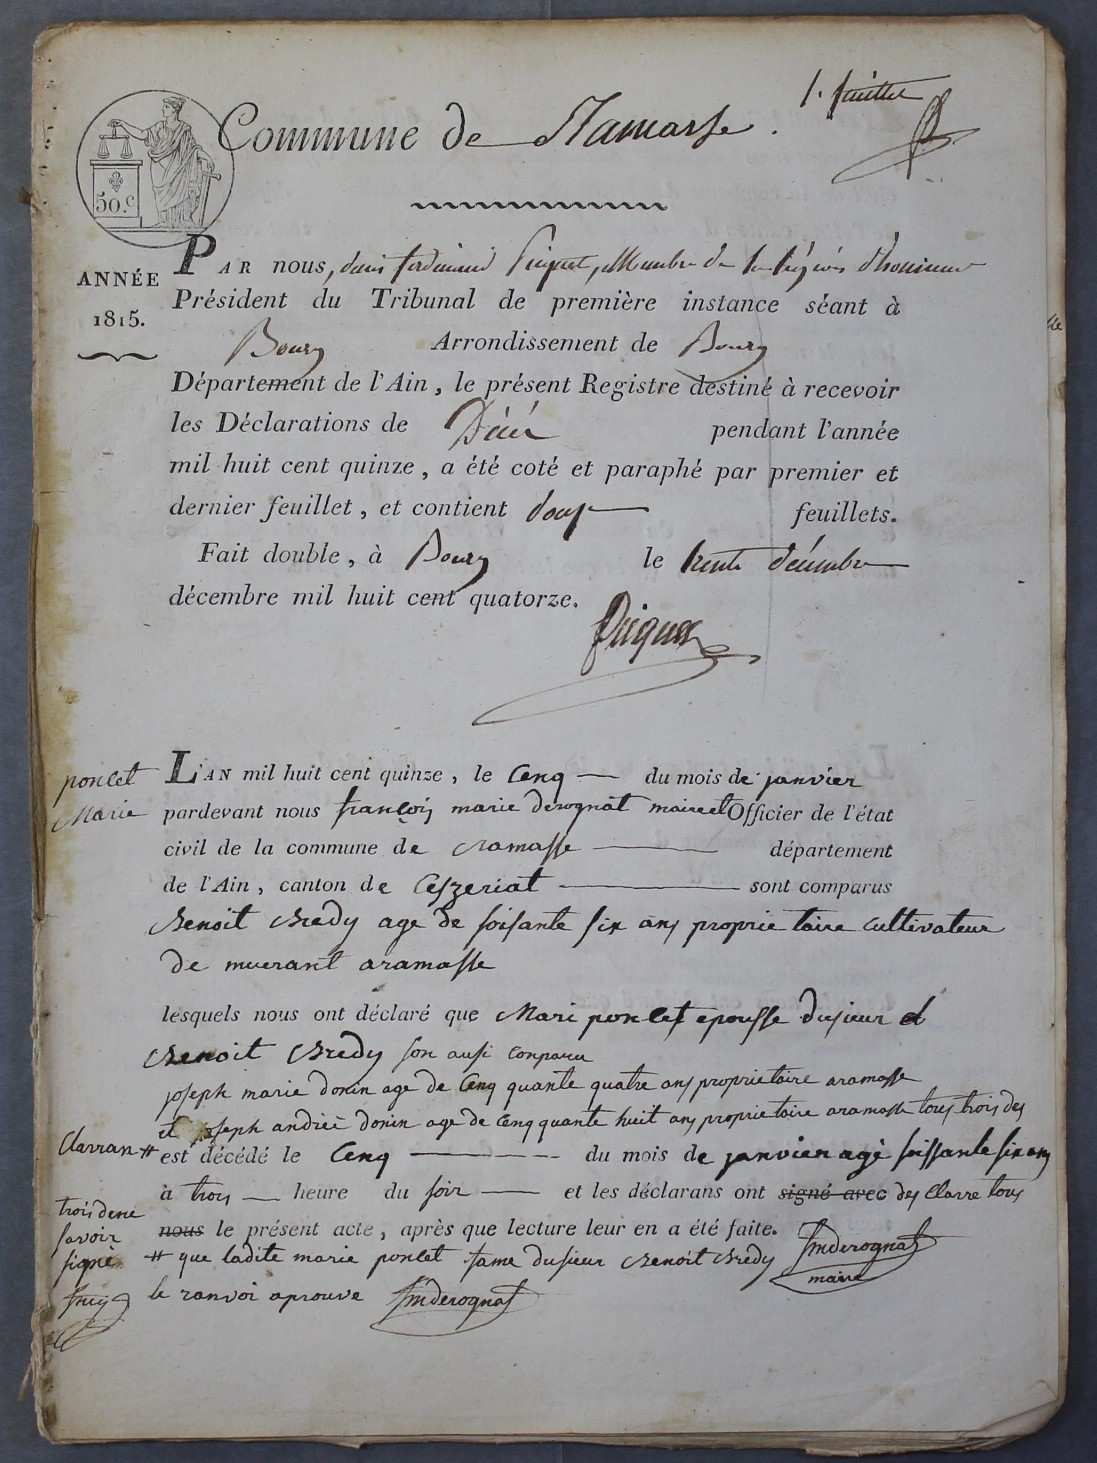 1. feuillet
Commune de Ramasse.
50.c
ANNÉE
1815.
PAR nous, Ferdinand Picquet, Membre de la légion d'honneur
Président du Tribunal de première instance séant à
Bourg Arrondissement de Bourg
Département de l'Ain, le présent Registre destiné à recevoir
les Déclarations de Décés pendant l'année
mil huit cent quinze, a été coté et paraphé par premier et
dernier feuillet, et contient douze feuillets.
Fait double, à Bourg le trente décembre
décembre mil huit cent quatorze.
Picquet
poncet
Marie
L'AN mil huit cent quinze, le Cenq du mois de janvier
pardevant nous françois marie derognat maire et Officier de l'état
civil de la commune de ramasse département
de l'Ain, canton de Ceyzeriat sont comparus
Benoit Bredy age de soisante six ans proprietaire cultivateur
de meurant aramasse
lesquels nous ont déclaré que Mari poncet epousse dusieur
Benoit Bredy son ausi conparu
joseph marie donin age de Cenq quante quatre ans proprietaire aramasse
et joseph andrei donin age de Cenq quante huit ans proprietaire aramasse tous trois des
Clarran #
est décédé le Cenq du mois de janvier agé soissante six ans
à trois heure du soir et les déclarans ont signé avec des Clarre tous
trois dene
savoir
signé
nous le présent acte, après que lecture leur en a été faite. fmderognat
maire
# que ladite marie poncet fame dusieur Benoit Bredy
le ranvoi aprouve fmderognat